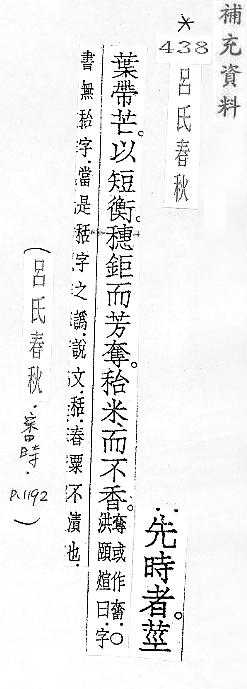 補充資料
*
438
呂氏春秋
先時者。莖
葉帶芒。以短衡。穗鉅而芳奪。秮米而不香。奪或作奮。○
洪頤煊曰。字
書無秮字。當是秳字之譌。說文。秳。舂粟不潰也。
(呂氏春秋·審時 P.1192)